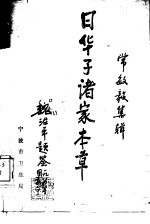 常敏毅集辑
日华子诸家本草
魏治平题签
宁波市卫生局